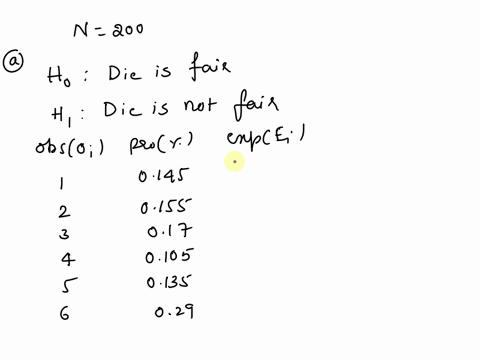 N = 200
(a)
H₀ : Die is fair
H₁ : Die is not fair
obs(oᵢ) pro(r.) exp(Eᵢ)
1 0.145
2 0.155
3 0.17
4 0.105
5 0.135
6 0.29